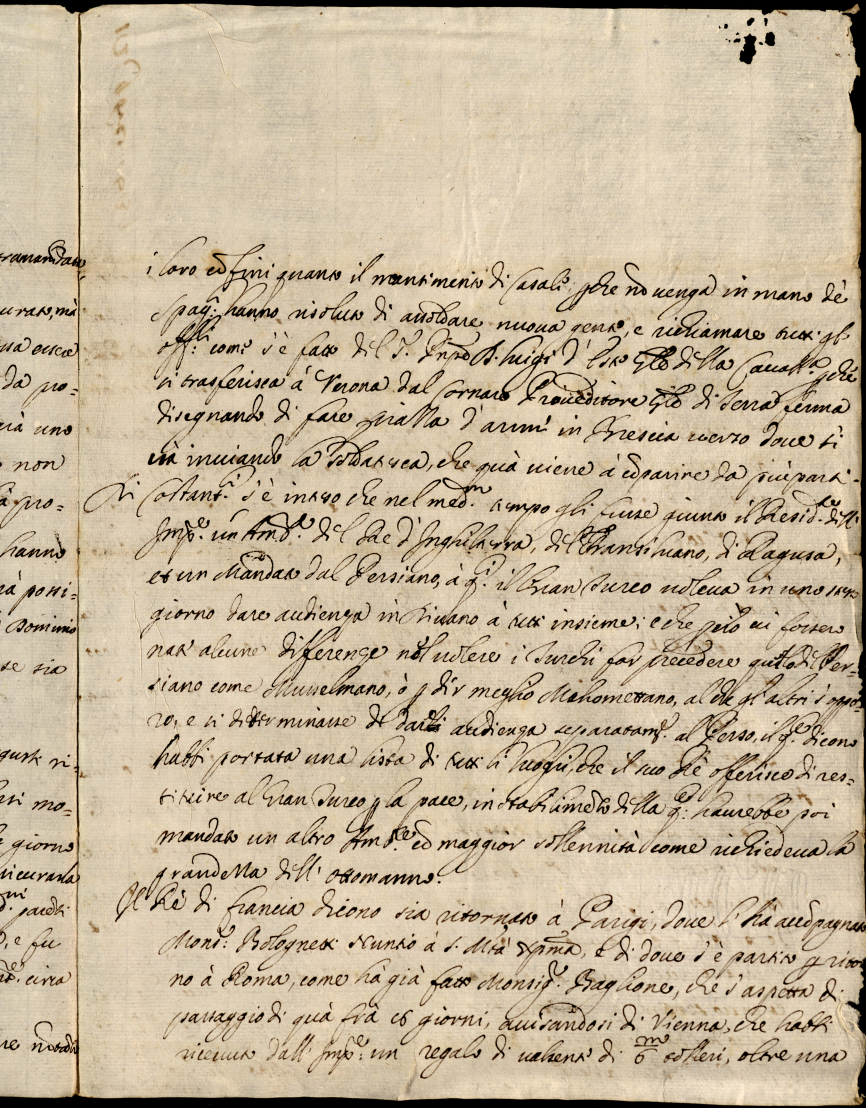 i loro confini quanto il mantimento di Casale pche nō venga in mano de
Spag.li hanno risoluto di assoldare nuova gente, e richiamare tutti gli
Off.li come s'è fatto del S.r Pnpe D. Luigi d'Este Gńle della Cavall.a pche
si trasferisca à Verona dal Cornaro Proveditore Gńle di Terra ferma
disegnando di fare piazza d'armi in Brescia verso dove si
và inviando la Soldatesca, che quà viene à cōparire da più parti.
Di Costant.li s'è inteso che nel med.m tempo gli fusse giunto il Resid.te dell
Imp.re un Amb.r del Rè d'Inghilterra, del Transilvano, di Ragusa,
et un Mandato dal Persiano, à q.i il Gran Turco voleva in uno stesso
giorno dare audienza in Divano à tutti insieme; e che però vi fossero
nate alcune differenze nel volere i Turchi far precedere quello del Per-
siano come Musselmano, ò p dir meglio Mahomettano, al che gl'altri s'oppo-
ro, e si determinasse di darli audienza separatam.e al Perso, il q.e dicono
habbi portata una lista di tutti li luoghi, che il suo Rè offerisce di res-
tituire al Gran Turco p la pace, in stabilimēto della q.e haverebbe poi
mandato un altro Amb.re cō maggior sollennità come richiedeva la
grandezza dell' ottomanno.
Il Rè di Francia dicono sia ritornato à Parigi, dove l'hà accōpagnato
Mons.r Bolognetti Nuntio à S. M.tà Xpma, e di dove s'è partito p ritor
no à Roma, come hà già fatto Monsig.r Baglione, che s'aspetta di
passaggio di quà frà 15 giorni, avisandosi di Vienna, che habbi
ricevuto dall' Imp.re un regalo di valente di 6m talleri, oltre una